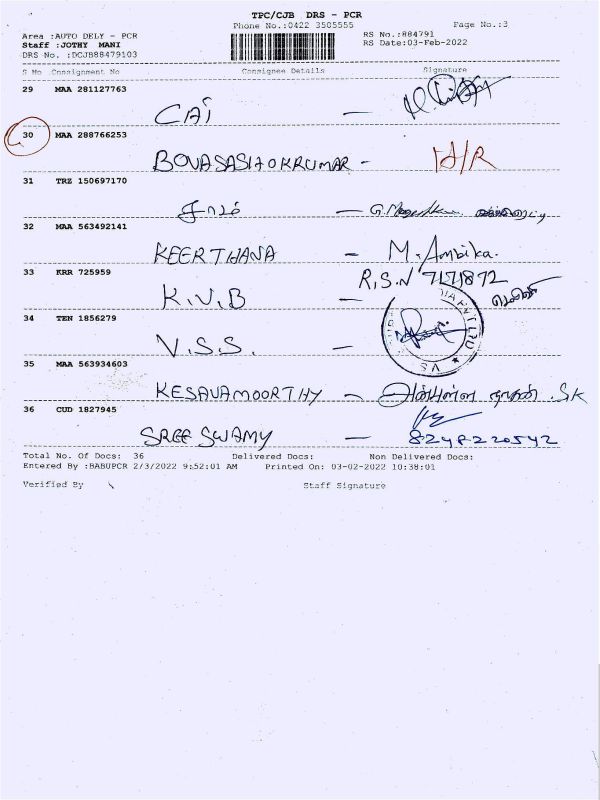 TPC/CJB DRS - PCR
Phone No.:0422 3505555 Page No.:3
Area :AUTO DELY - PCR RS No.:884791
Staff :JOTHY MANI RS Date:03-Feb-2022
DRS No. :DCJB88479103
S No Consignment No Consignee Details Signature
29 MAA 281127763
CAI -
30 MAA 288766253
BOVASASHOKRUMAR -
31 TRZ 150697170
-
32 MAA 563492141
KEERTHANA - M. Ambika.
33 KRR 725959 R.S.N 7171872
K.V.B -
34 TEN 1856279
V.S.S. -
35 MAA 563934603
KESAVAMOORTHY - SK
36 CUD 1827945
SREE SWAMY - 8248220542
Total No. Of Docs: 36 Delivered Docs: Non Delivered Docs:
Entered By :BABUPCR 2/3/2022 9:52:01 AM Printed On: 03-02-2022 10:38:01
Verified By Staff Signature